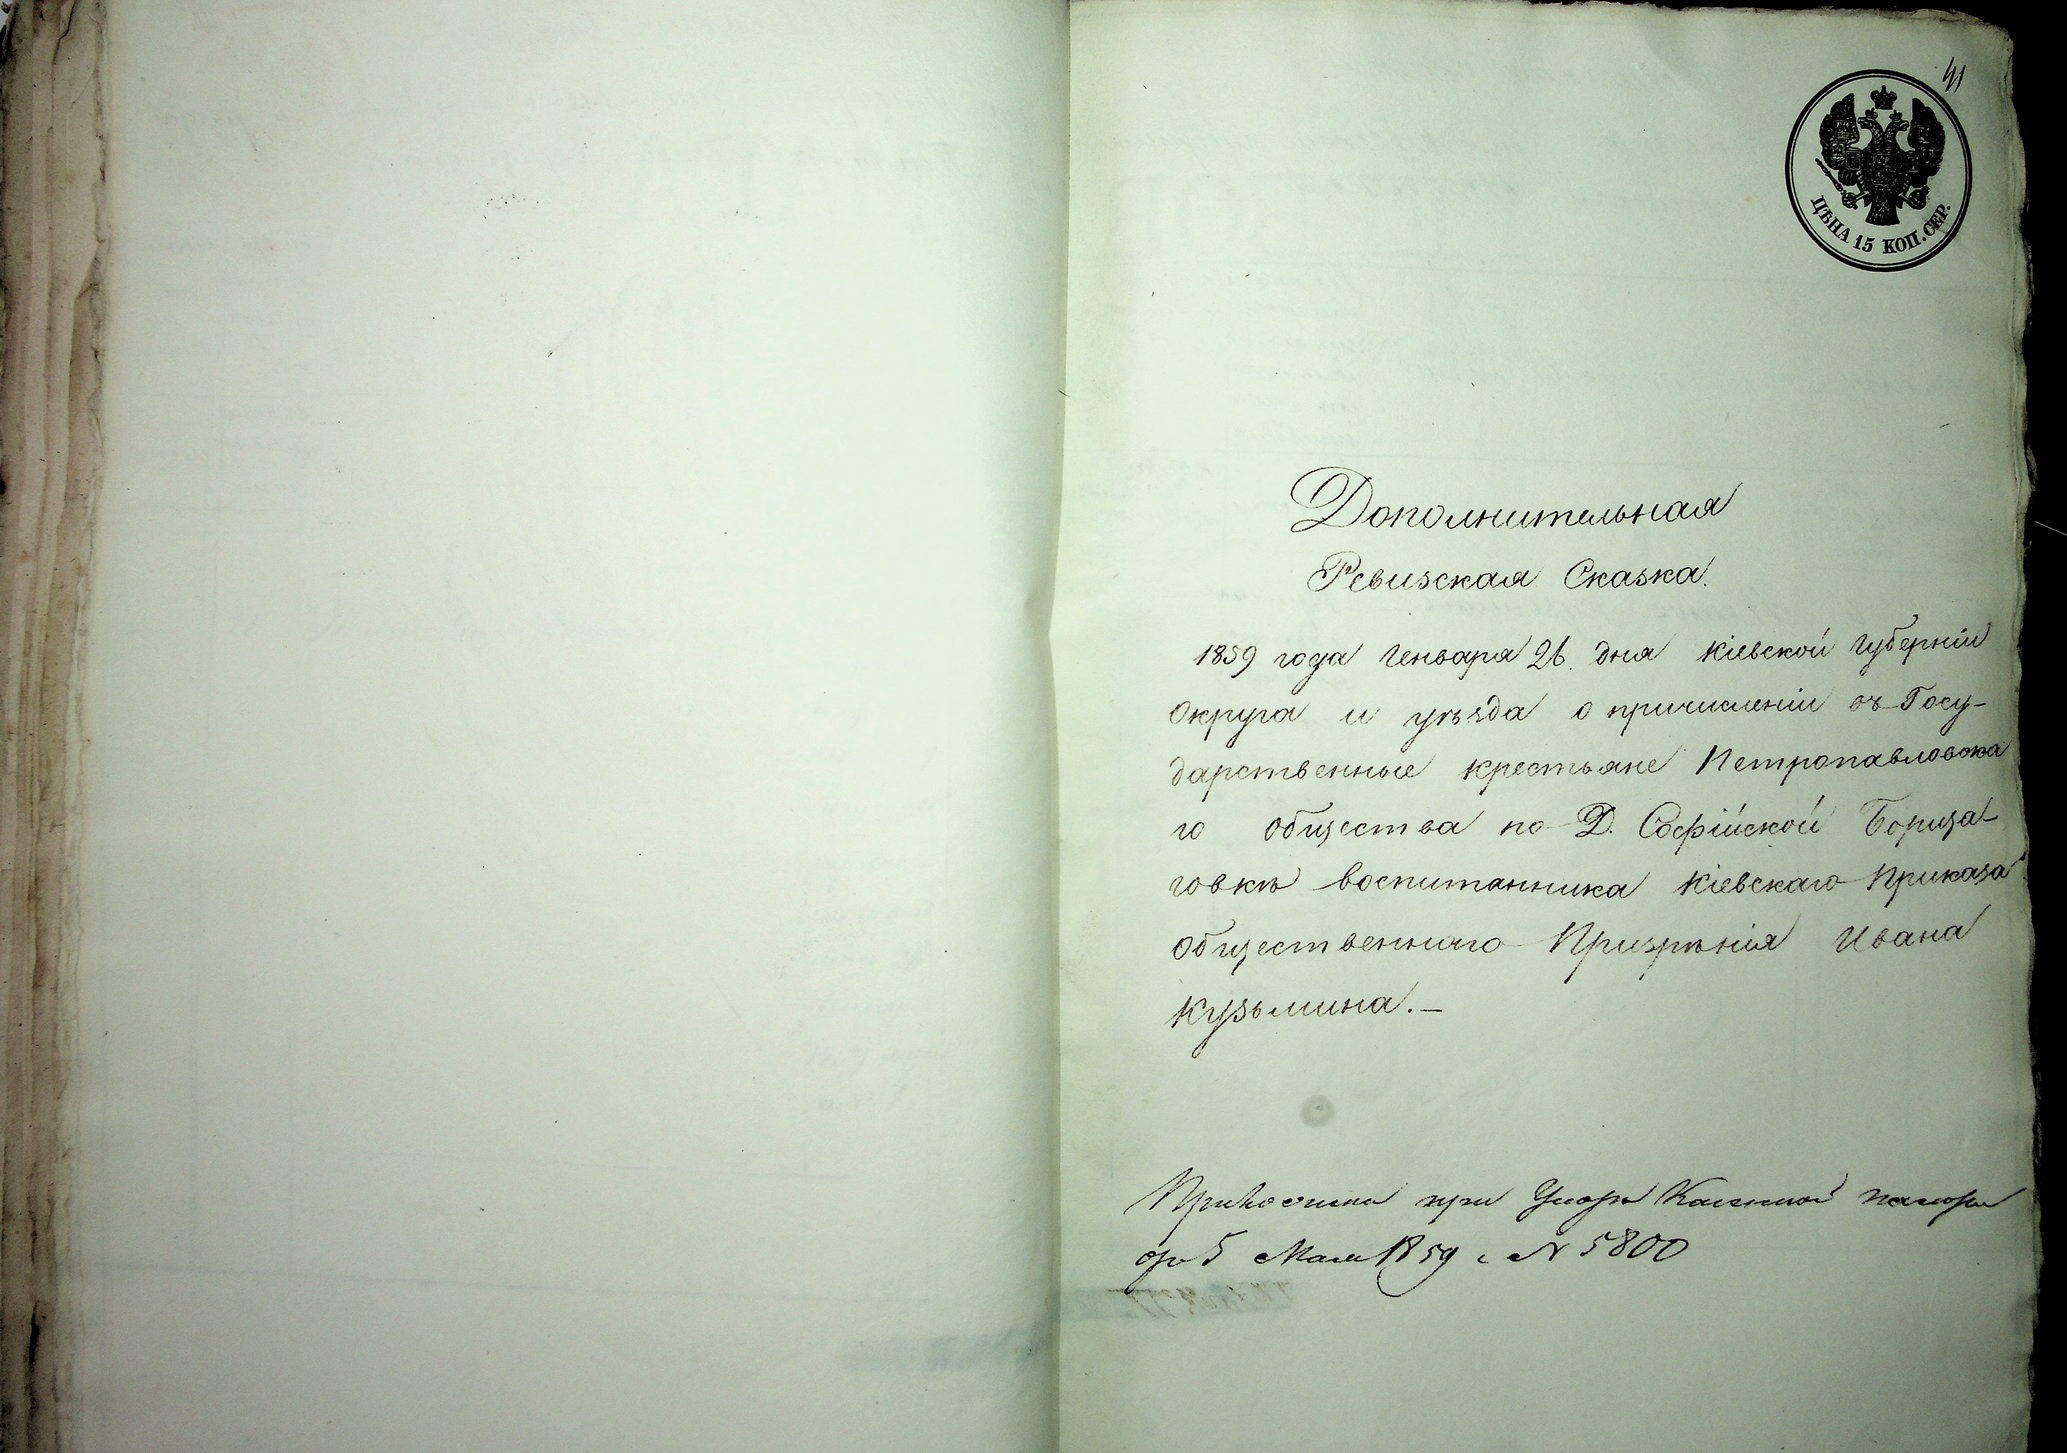 41
ЦѢНА 15 КОП. СЕР.
Дополнительная
Ревизская Сказка.
1859 года Генваря 26. дня Кіевской Губерніи
Округа и уѣзда о причисленіи въ Госу-
дарственные крестьяне Петропавловска
го общества по Д. Софійской Борща-
говкѣ воспитанника Кіевскаго Приказа
Общественнаго Призрѣнія Ивана
Кузьмина.-
при Указѣ Казенной палаты
5 Мая 1859 г. N 5800